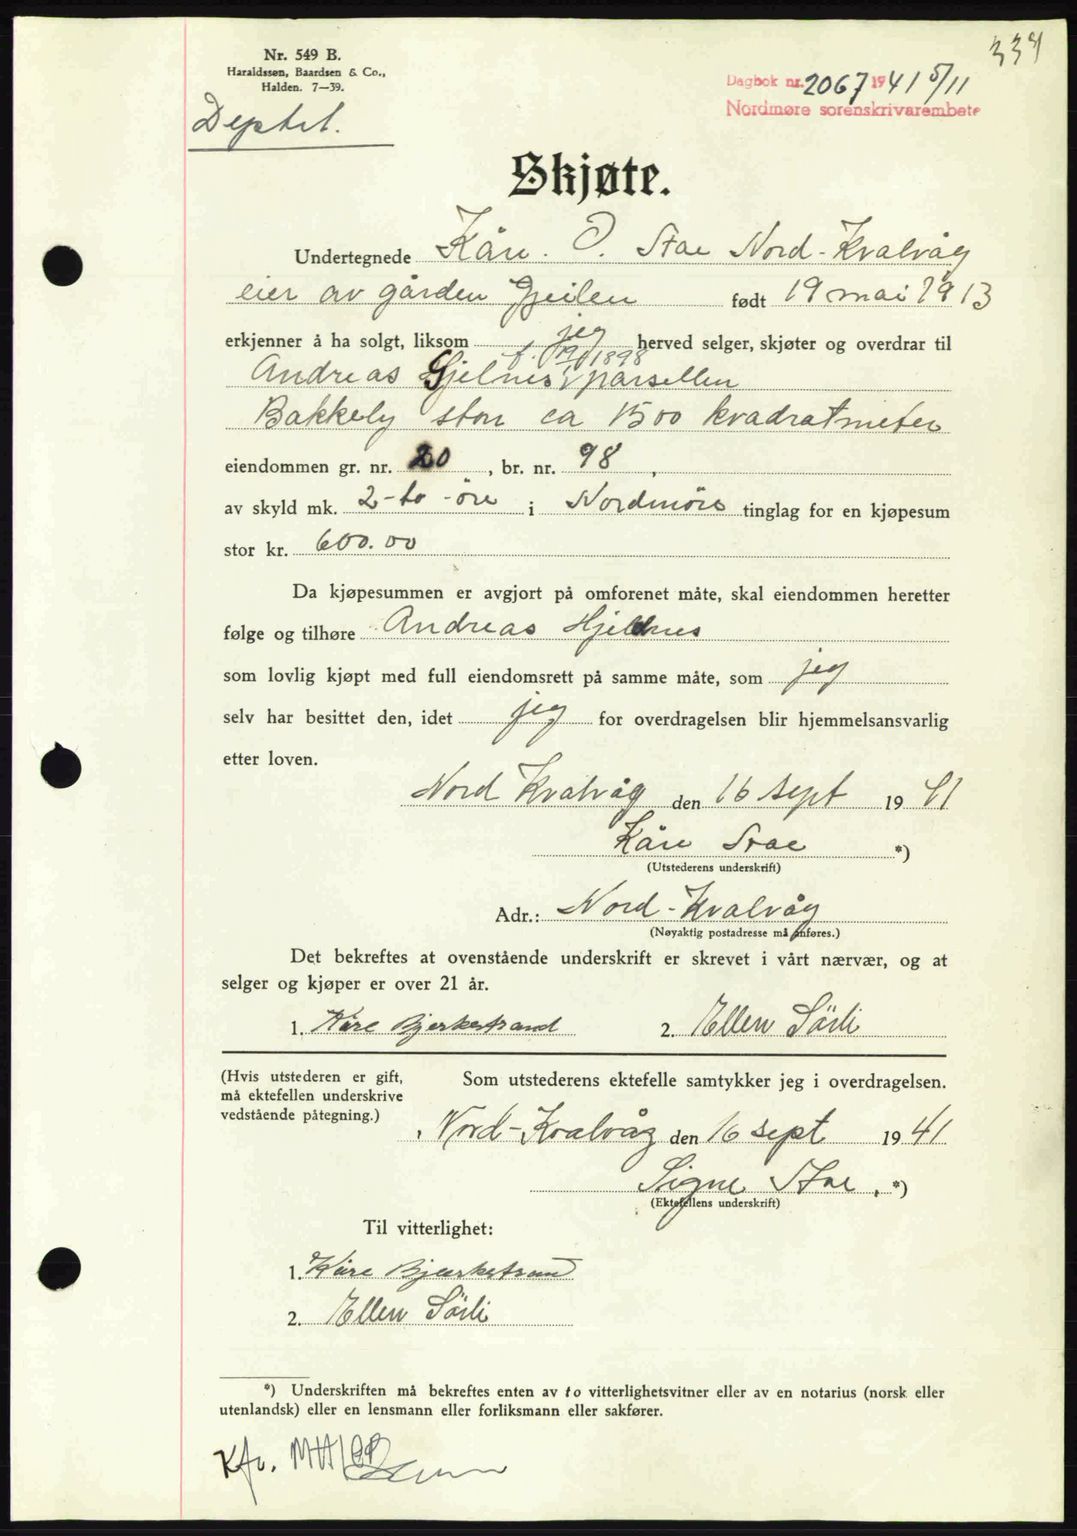 334
Nr. 549 B.
Haraldssøn, Baardsen & Co.,
Halden. 7—39.
Dagbok nr. 2067 1941 5/11
Nordmøre sorenskrivarembete
Skjøte.
Undertegnede Kåre. O. Stae Nord-Kvalvåg
eier av gården Gjeilen født 19 mai 1913
erkjenner å ha solgt, liksom jeg herved selger, skjøter og overdrar til
Andreas Hjelnes parsellen
Bakkely stor ca 1500 kvadratmeter
eiendommen gr. nr. 20, br. nr. 98,
av skyld mk. 2-to-öre i Nordmöre tinglag for en kjøpesum
stor kr. 600.00
Da kjøpesummen er avgjort på omforenet måte, skal eiendommen heretter
følge og tilhøre Andreas Hjelnes
som lovlig kjøpt med full eiendomsrett på samme måte, som jeg
selv har besittet den, idet jeg for overdragelsen blir hjemmelsansvarlig
etter loven.
Nord Kvalvåg den 16 sept 1941
Kåre Stae *)
(Utstederens underskrift)
Adr.: Nord-Kvalvåg
(Nøyaktig postadresse må anføres.)
Det bekreftes at ovenstående underskrift er skrevet i vårt nærvær, og at
selger og kjøper er over 21 år.
1. Kåre Bjerkestrand 2. Ellen Sörli
(Hvis utstederen er gift,
må ektefellen underskrive
vedstående påtegning.)
Som utstederens ektefelle samtykker jeg i overdragelsen.
, Nord-Kvalvåg den 16 sept 1941
Signe Stae, *)
(Ektefellens underskrift)
Til vitterlighet:
1. Kåre Bjerkestrand
2. Ellen Sörli
*) Underskriften må bekreftes enten av to vitterlighetsvitner eller av en notarius (norsk eller
utenlandsk) eller en lensmann eller forliksmann eller sakfører.